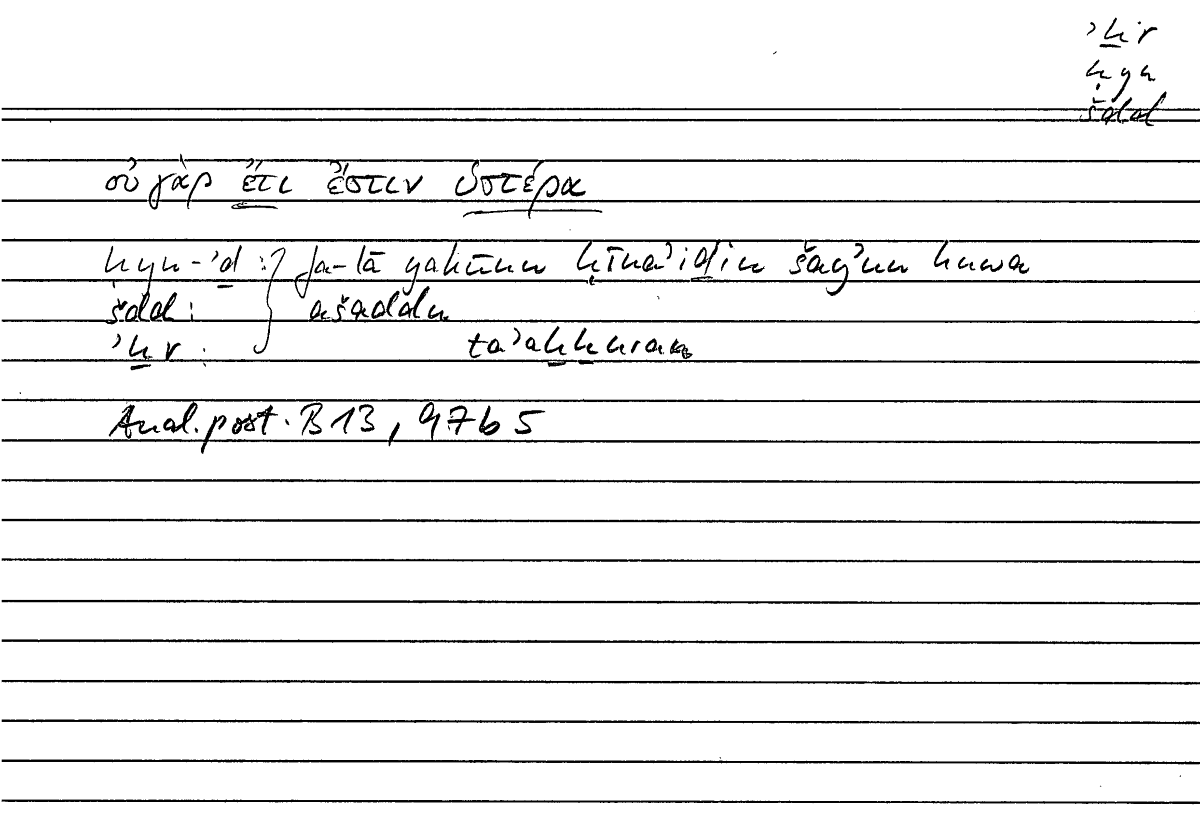 ʾḫr
ḥyn
šdd
οὐ γὰρ ἔτι ἔστιν ὑστέρα
ḥyn-ʾḏ : } fa-lā yakūnu ḥīnaʾiḏin šayʾun huwa
šdd : ašaddu
ʾḫr : taʾaḫḫuran
Anal. post. B 13, 97b5